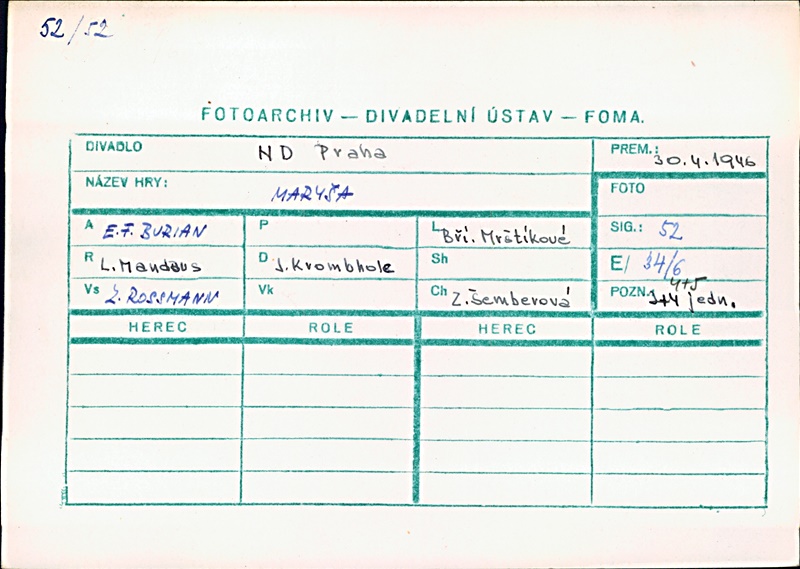 52/52
FOTOARCHIV — DIVADELNÍ ÚSTAV — FOMA.
DIVADLO ND Praha PREM.: 30.4.1946
NÁZEV HRY: MARYŠA FOTO
A E.F. BURIAN P L Bří. Mrštíkové SIG.: 52
R L. Mandaus D J. Krombholc Sh E/ 34/6
Vs Z. ROSSMANN Vk Ch Z. Šemberová POZN. 3+4 4+5 jedn.
HEREC ROLE HEREC ROLE